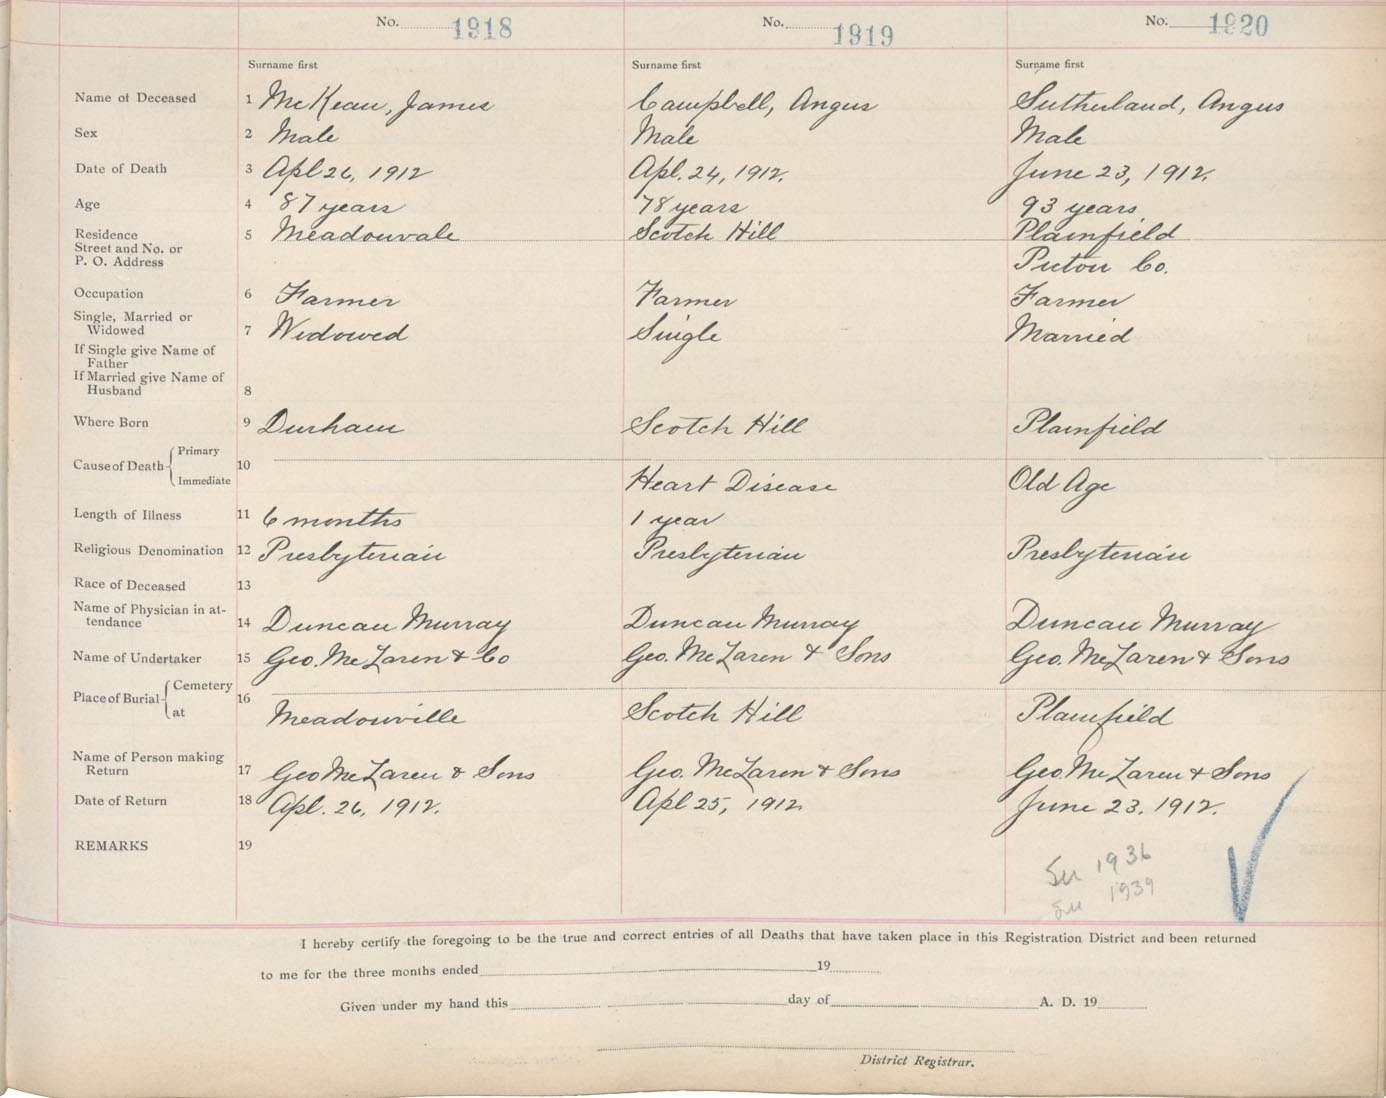 No. 1918 No. 1919 No. 1920
Surname first Surname first Surname first
Name of Deceased 1 McKean, James Campbell, Angus Sutherland, Angus
Sex 2 Male Male Male
Date of Death 3 Apl 26, 1912 Apl. 24, 1912. June 23, 1912.
Age 4 87 years 78 years 93 years
Residence 5 Meadowvale Scotch Hill Plainfield
Street and No. or
P. O. Address Pictou Co.
Occupation 6 Farmer Farmer Farmer
Single, Married or
Widowed 7 Widowed Single Married
If Single give Name of
Father
If Married give Name of
Husband 8
Where Born 9 Durham Scotch Hill Plainfield
Primary
Cause of Death 10
Immediate Heart Disease Old Age
Length of Illness 11 6 months 1 year
Religious Denomination 12 Presbyterian Presbyterian Presbyterian
Race of Deceased 13
Name of Physician in at-
tendance 14 Duncan Murray Duncan Murray Duncan Murray
Name of Undertaker 15 Geo. McLaren & Co Geo. McLaren & Sons Geo. McLaren & Sons
Cemetery
Place of Burial 16
at Meadowville Scotch Hill Plainfield
Name of Person making
Return 17 Geo McLaren & Sons Geo. McLaren & Sons Geo. McLaren & Sons
Date of Return 18 Apl. 26, 1912. Apl 25, 1912 June 23. 1912.
REMARKS 19
1936
1939
I hereby certify the foregoing to be the true and correct entries of all Deaths that have taken place in this Registration District and been returned
to me for the three months ended 19
Given under my hand this day of A. D. 19
District Registrar.